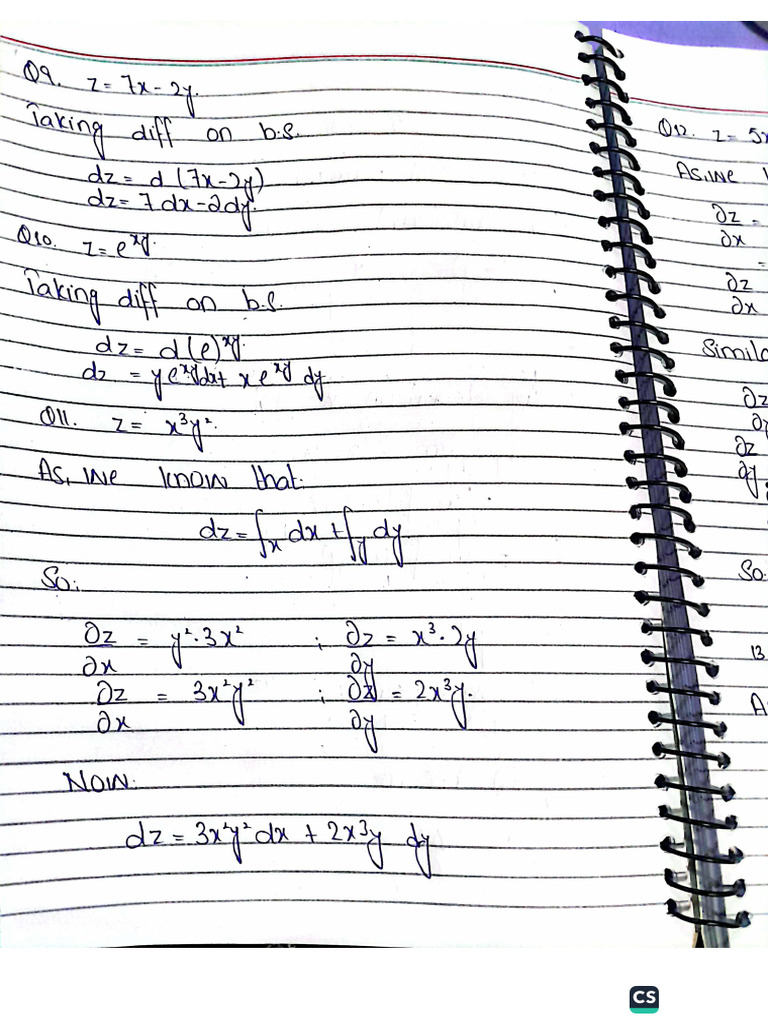 Q9. z = 7x - 2y.
Taking diff on b.s.
dz = d (7x-2y)
dz = 7 dx - 2dy.
Q10. z = e^xy.
Taking diff on b.s.
dz = d(e)^xy.
dz = ye^xy dx + x e^xy dy
Q11. z = x³y².
As, we know that.
dz = fx dx + fy dy
So:
∂z/∂x = y².3x² ; ∂z/∂y = x³.2y
∂z/∂x = 3x²y² ; ∂z/∂y = 2x³y.
Now:
dz = 3x²y² dx + 2x³y dy
Q12. z = 5x
As, we
∂z/∂x =
=
∂z/∂x
∂z
∂z
So.
13
A
CS